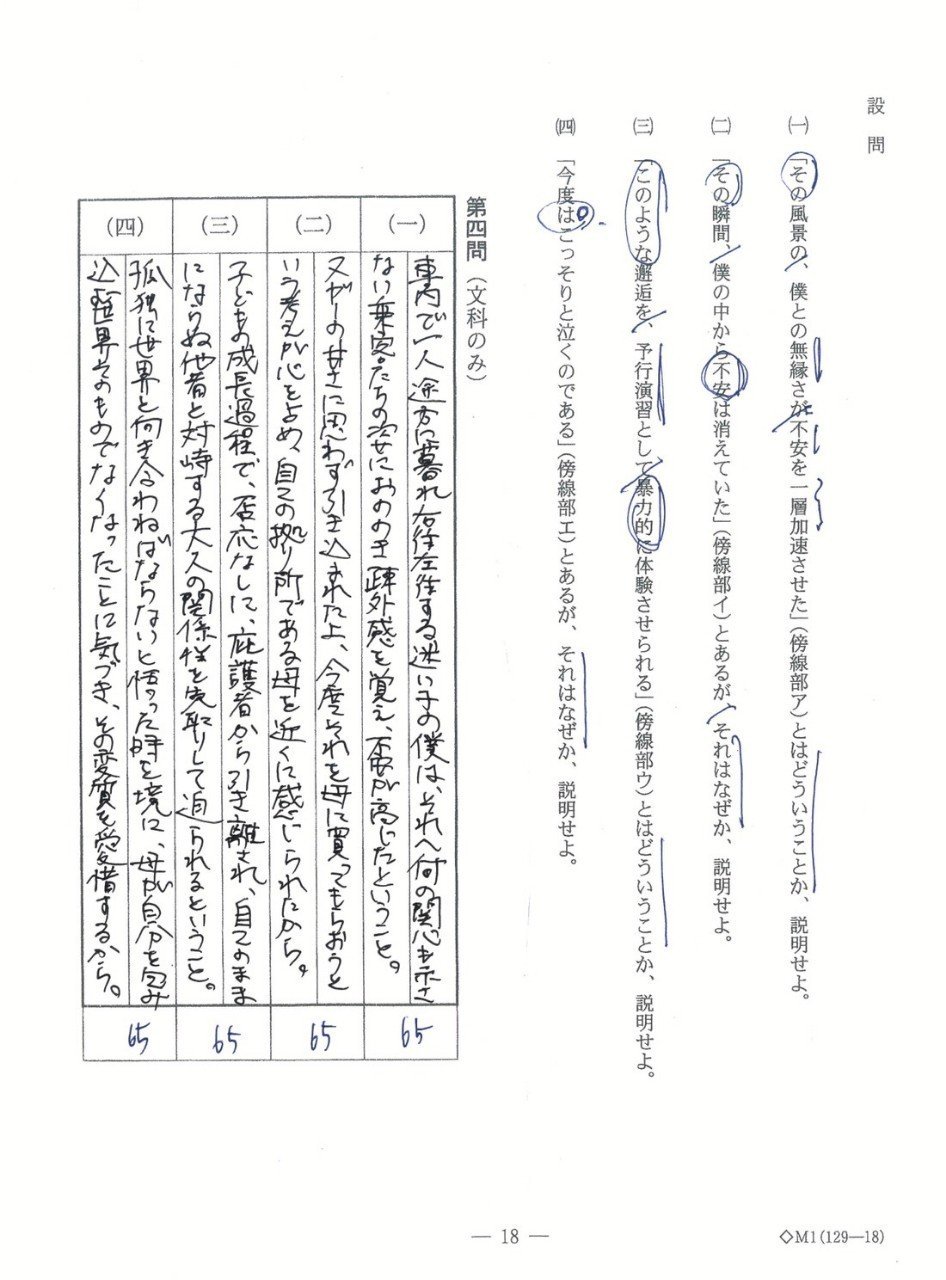 設問
㈠「その風景の、僕との無縁さが不安を一層加速させた」(傍線部ア)とはどういうことか、説明せよ。
㈡「その瞬間、僕の中から不安は消えていた」(傍線部イ)とあるが、それはなぜか、説明せよ。
㈢「このような邂逅を、予行演習として暴力的に体験させられる」(傍線部ウ)とはどういうことか、説明せよ。
㈣「今度はこっそりと泣くのである」(傍線部エ)とあるが、それはなぜか、説明せよ。
第四問(文科のみ)
(一)
車内で一人途方に暮れ右往左往する迷い子の僕は、それへ何の関心も示さ
ない乗客たちの姿におののき疎外感を覚え、不安が高じたということ。
65
(二)
ヌガーの甘さに思わず引き込まれた上、今度それを母に買ってもらおうと
いう考えが心を占め、自分の拠り所である母を近くに感じられたから。
65
(三)
子どもの成長過程で、否応なしに、庇護者から引き離され、自分のまま
にならぬ他者と対峙する大人の関係性を先取りして迫られるということ。
65
(四)
孤独に世界と向き合わねばならないと悟った時を境に、母が自分を包み
込む世界そのものでなくなったことに気づき、その変質を愛惜するから。
65
— 18 —
◇M1(129—18)